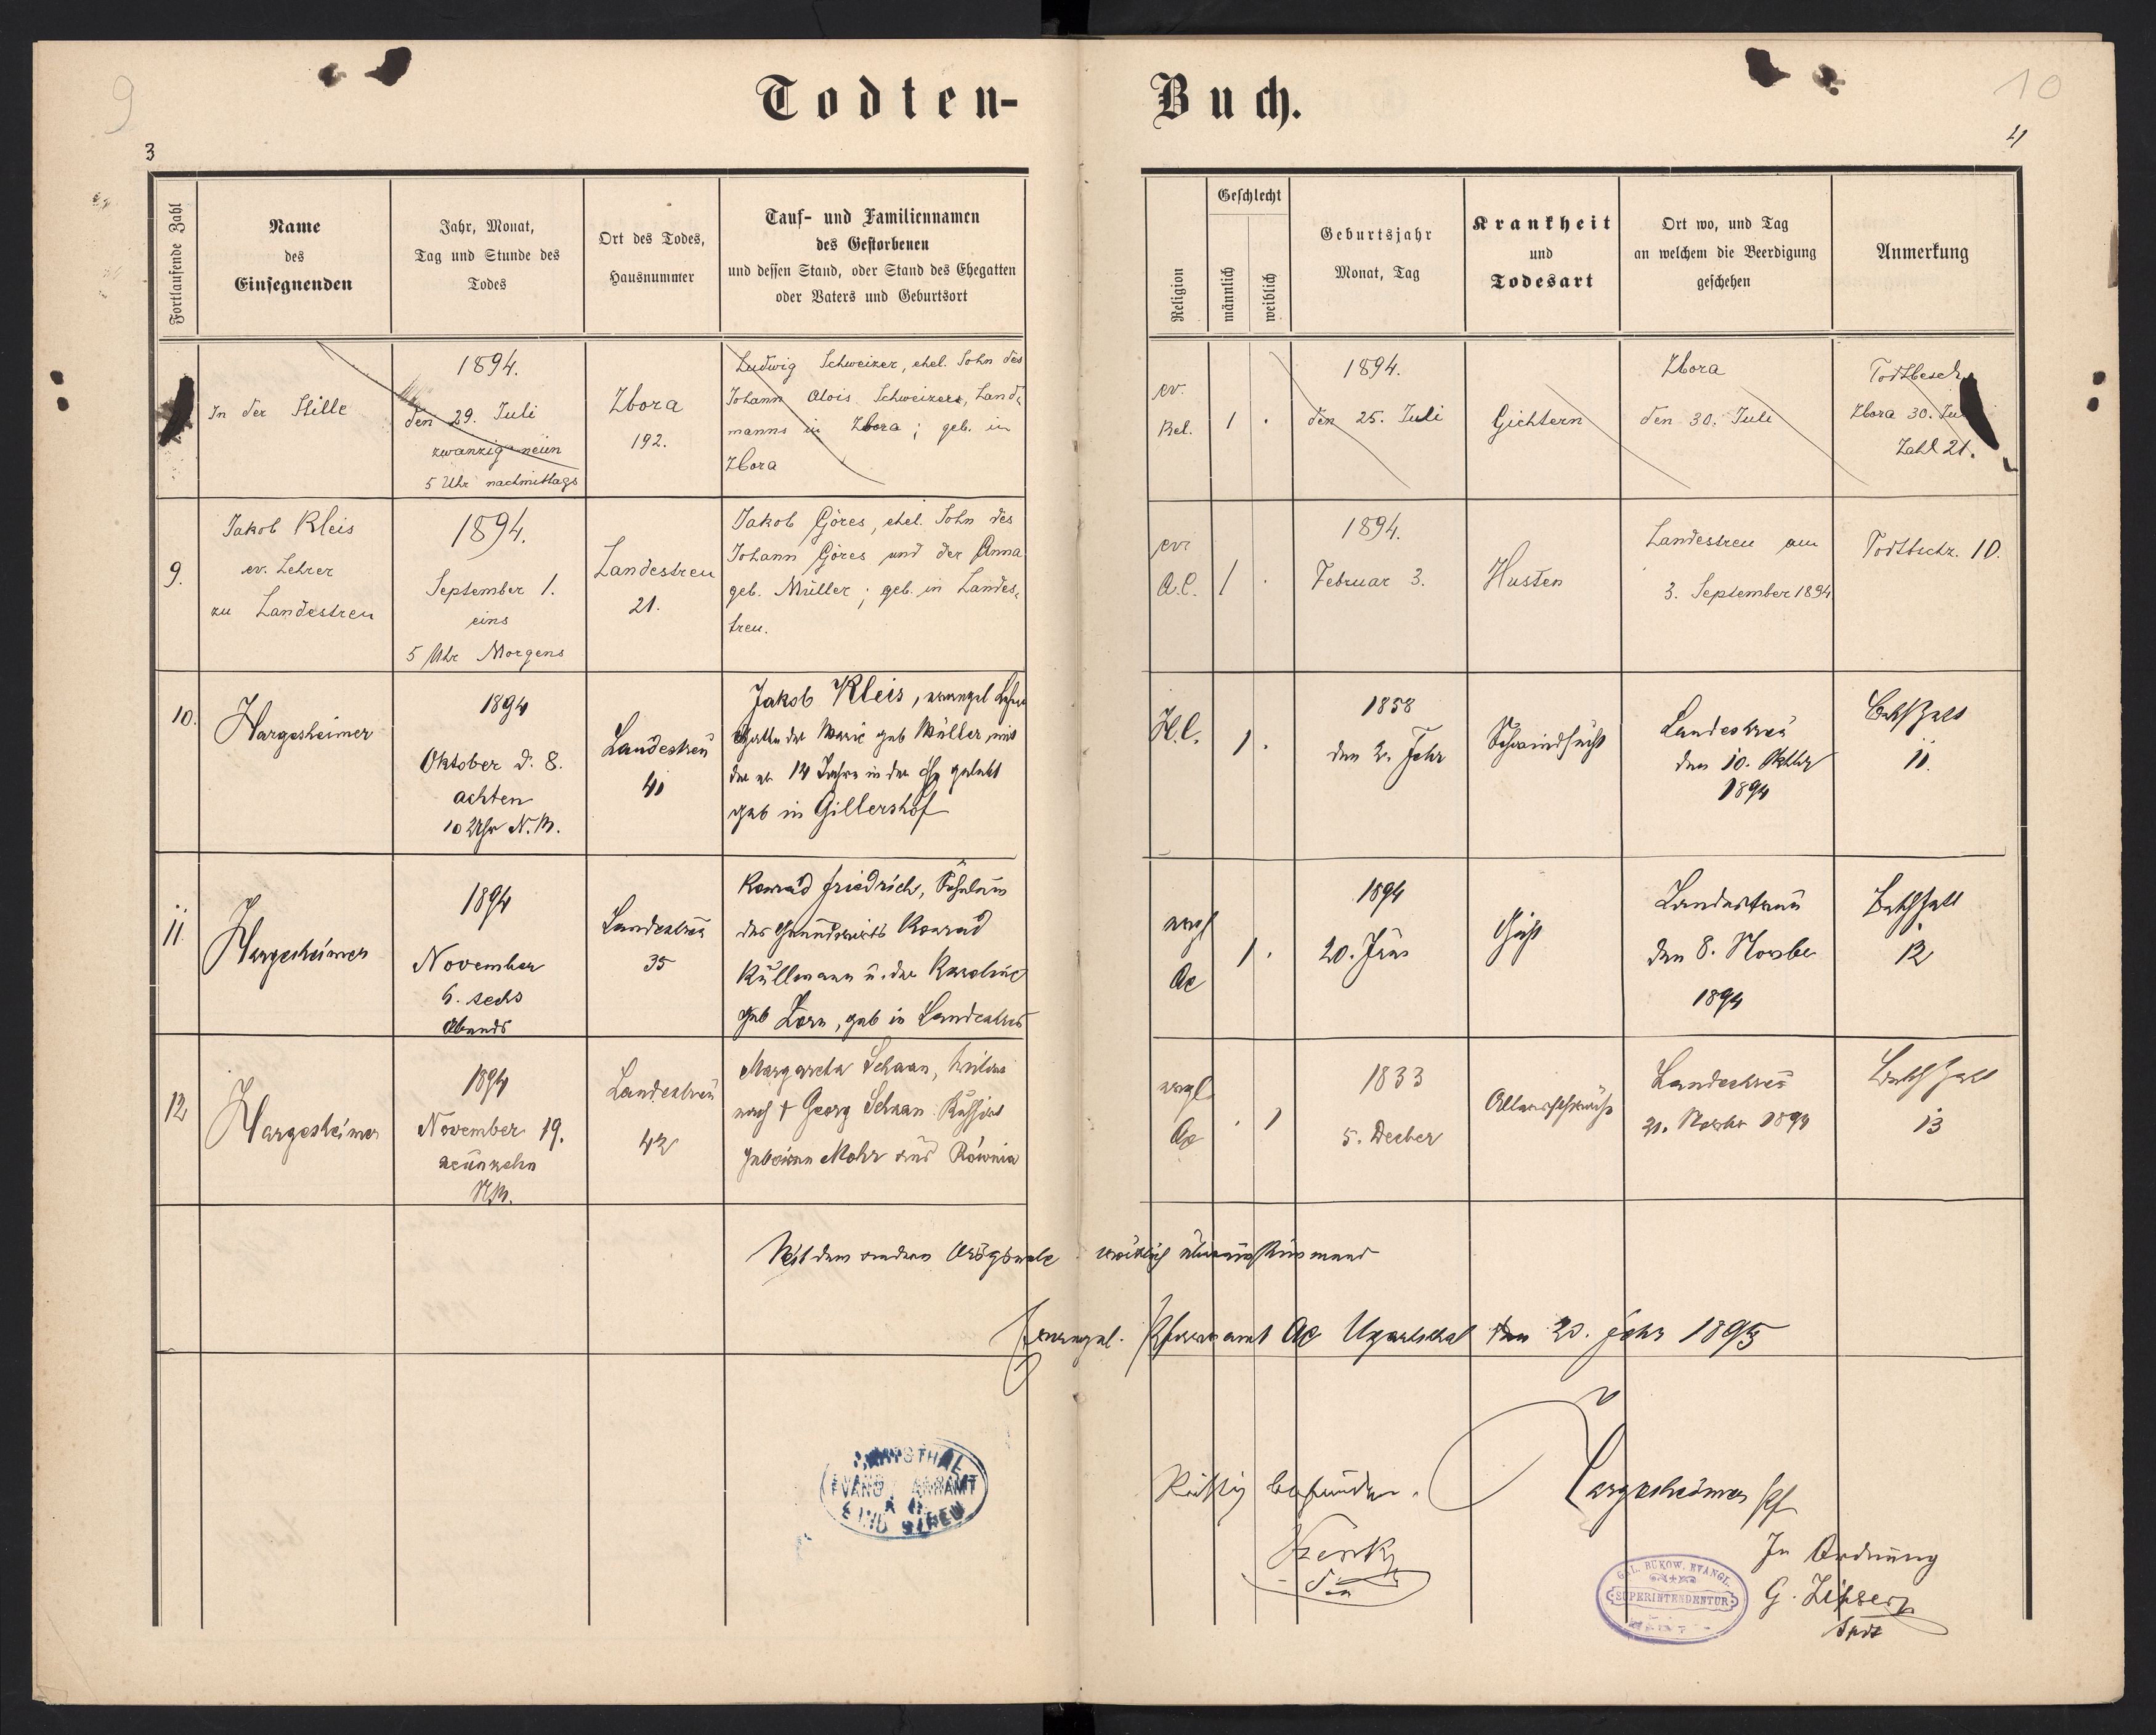 9
10
Todten-
Buch.
3
4
Fortlaufende Zahl
Name
des
Einsegnenden
Jahr, Monat,
Tag und Stunde des
Todes
Ort des Todes,
Hausnummer
Tauf- und Familiennamen
des Gestorbenen
und dessen Stand, oder Stand des Ehegatten
oder Vaters und Geburtsort
Religion
Geschlecht
männlich
weiblich
Geburtsjahr
Monat, Tag
Krankheit
und
Todesart
Ort wo, und Tag
an welchem die Beerdigung
geschehen
Anmerkung
In der Stille
1894.
den 29. Juli
zwanzig neun
5 Uhr nachmittags
Zbora
192.
Ludwig Schweizer, ehel. Sohn des
Johann Alois Schweizers, Land-
manns in Zbora; geb. in
Zbora
ev.
Ref.
1 .
1894.
den 25. Juli
Gichtern
Zbora
den 30. Juli
Todtbesch.
Zbora 30. Ju
Zahl 21.
9.
Jakob Kleis
ev. Lehrer
zu Landestreu
1894.
September 1.
eins
5 Uhr Morgens
Landestreu
21.
Jakob Göres, ehel. Sohn des
Johann Göres und der Anna
geb. Müller; geb. in Landes-
treu.
ev.
A.C.
1 .
1894.
Februar 3.
Husten
Landestreu am
3. September 1894
Todtbschr. 10.
10.
Hargesheimer
1894
Oktober d. 8.
achten
10 Uhr N.M.
Landestreu
41
Jakob Kleis, evangel Lehrer
Gatte der Marie geb Müller, mit
der er 14 Jahre in der Ehe gelebt
geb in Gillershof
1 .
1858
den 2. Febr
Schwindsucht
Landestreu
den 10. Oktbr
1894
11.
11.
Hargesheimer
1894
November
6. sechs
Abends
Landestreu
35
Konrad Friedrich, Söhnlein
des Grundwirts Konrad
Küllmann u. der Karoline
geb Zorn, geb in Landestreu
evgl
Ac
1 .
1894
20. Jun
Gicht
Landestreu
den 8. Novbr
1894
12
12
Hargesheimer
1894
November 19.
neunzehn
NM.
Landestreu
42
Margareta Schaan, Witwe
nach † Georg Schaan
geborene Mohr aus Rownia
evgl
Ac
. 1
1833
5. Decber
Altersschwäche
Landestreu
21. Novbr 1894
13
Mit dem andern Originale wörtlich übereinstimmend
Evangel. Pfarramt Ac Ugartsthal den 20. Febr 1895
EVANG
Richtig befunden.
Hargesheimer Pf
In Ordnung
G. Zipser
Supdt
GAL. BUKOW. EVANGL.
SUPERINTENDENTUR